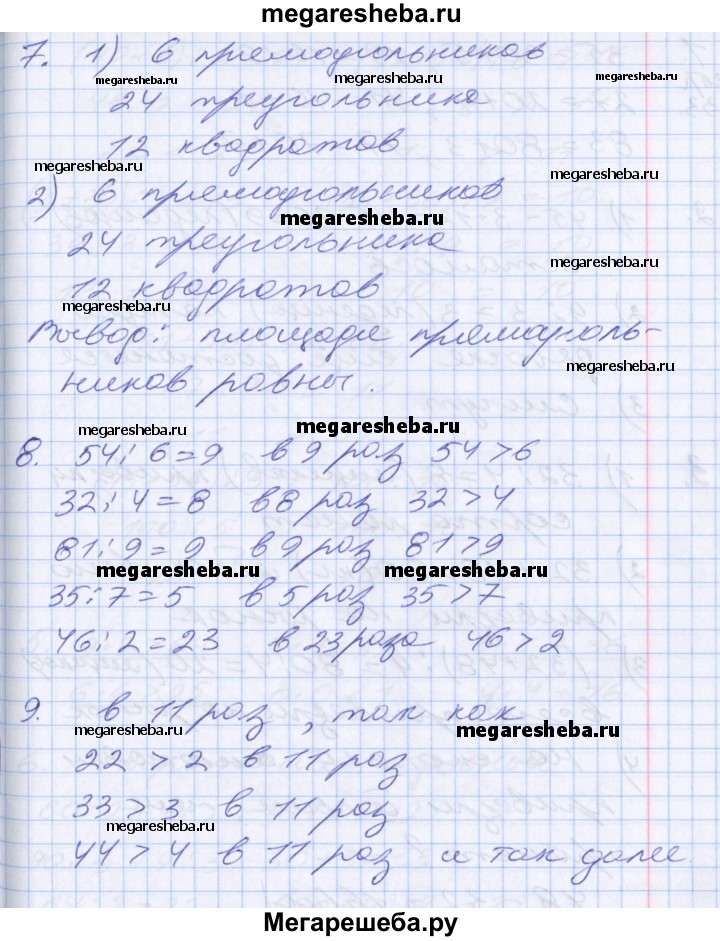 megaresheba.ru
7. 1) 6 прямоугольников
megaresheba.ru megaresheba.ru megaresheba.ru
24 треугольника
12 квадратов
megaresheba.ru megaresheba.ru
2) 6 прямоугольников
megaresheba.ru
24 треугольника
megaresheba.ru
12 квадратов
megaresheba.ru
Вывод: площади прямоуголь-
megaresheba.ru
ников равны.
megaresheba.ru megaresheba.ru
8. 54 : 6 = 9 в 9 раз 54 > 6
32 : 4 = 8 в 8 раз 32 > 4
81 : 9 = 9 в 9 раз 81 > 9
megaresheba.ru megaresheba.ru
35 : 7 = 5 в 5 раз 35 > 7
46 : 2 = 23 в 23 раза 46 > 2
9. в 11 раз, так как
megaresheba.ru megaresheba.ru
22 > 2 в 11 раз
33 > 3 в 11 раз
megaresheba.ru
44 > 4 в 11 раз и так далее.
Мегарешеба.ру